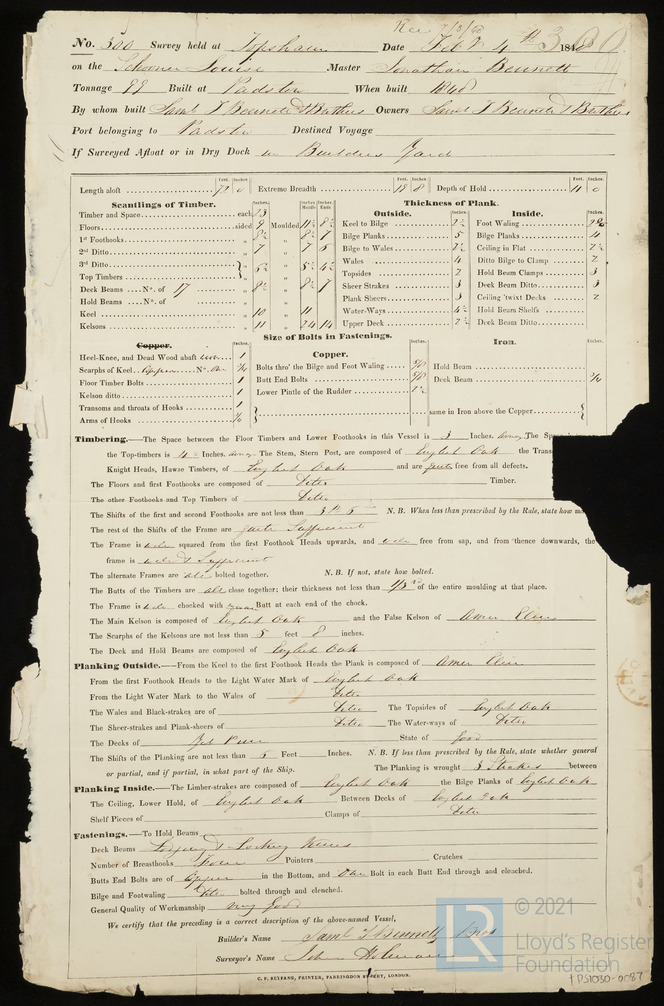 Rec 7/3/60
No. 300 Survey held at Topsham Date Feby 4th 18
on the Schooner Louise Master Jonathan Bennett
Tonnage 99 Built at Padstow When built 1848
By whom built Saml T Bennett & Brothers Owners Saml T Bennett & Brothers
Port belonging to Padstow Destined Voyage
If Surveyed Afloat or in Dry Dock in Builders Yard
Feet. Inches. Feet. Inches. Feet. Inches.
Length aloft 72 0 Extreme Breadth 18 8 Depth of Hold 11 0
Scantlings of Timber. Thickness of Plank.
Outside. Inside.
Timber and Space each 23 Keel to Bilge 2½ Foot Waling
Floors sided 9 Moulded 11½ 8½ Bilge Planks 5 Bilge Planks 4
1st Foothooks 8½ 8½ 7 Bilge to Wales 2½ Ceiling in Flat 2½
2nd Ditto 7 7 6 Wales 4 Ditto Bilge to Clamp 2
3rd Ditto Topsides 2 Hold Beam Clamps 3
Top Timbers Sheer Strakes 3 Deck Beam Ditto 3
Deck Beams No. of 17 8½ 8½ 7 Plank Sheers 3 Ceiling 'twixt Decks 2
Hold Beams No. of Water-Ways 4½ Hold Beam Shelfs
Keel 10 11 Upper Deck 2½ Deck Beam Ditto
Kelsons 11 24 14
Size of Bolts in Fastenings.
Copper. Copper. Iron.
Heel-Knee, and Dead Wood abaft iron 1 Bolts thro' the Bilge and Foot Waling 5/8 Hold Beam
Scarphs of Keel Copper No. Butt End Bolts 5/8 Deck Beam
Floor Timber Bolts 1 Lower Pintle of the Rudder
Kelson ditto 1
Transoms and throats of Hooks 1 same in Iron above the Copper
Arms of Hooks
Timbering.—The Space between the Floor Timbers and Lower Foothooks in this Vessel is 3 Inches. The
the Top-timbers is 4 Inches. The Stem, Stern Post, are composed of English Oak the Trans
Knight Heads, Hawse Timbers, of English Oak and are quite free from all defects.
The Floors and first Foothooks are composed of Ditto Timber.
The other Foothooks and Top Timbers of Ditto
The Shifts of the first and second Foothooks are not less than 3 ft 5 N. B. When less than prescribed by the Rule, state how
The rest of the Shifts of the Frame are quite Sufficient
The Frame is well squared from the first Foothook Heads upwards, and well free from sap, and from thence downwards, the
frame is well & Sufficient
The alternate Frames are all bolted together. N. B. If not, state how bolted.
The Butts of the Timbers are all close together; their thickness not less than 1/3rd of the entire moulding at that place.
The Frame is well chocked with Butt at each end of the chock.
The Main Kelson is composed of English Oak and the False Kelson of Amer Elm
The Scarphs of the Kelsons are not less than 5 feet 8 inches.
The Deck and Hold Beams are composed of English Oak
Planking Outside.—From the Keel to the first Foothook Heads the Plank is composed of Amer Elm
From the first Foothook Heads to the Light Water Mark of English Oak
From the Light Water Mark to the Wales of Ditto
The Wales and Black-strakes are of Ditto The Topsides of English Oak
The Sheer-strakes and Plank-sheers of Ditto The Water-ways of Ditto
The Decks of Yel Pine State of good
The Shifts of the Planking are not less than 5 Feet Inches. N. B. If less than prescribed by the Rule, state whether general
or partial, and if partial, in what part of the Ship. The Planking is wrought 3 Strakes between
Planking Inside.—The Limber-strakes are composed of English Oak the Bilge Planks of English Oak
The Ceiling, Lower Hold, of English Oak Between Decks of English Oak
Shelf Pieces of Clamps of Ditto
Fastenings.—To Hold Beams
Deck Beams Lodging & Locking Knees
Number of Breasthooks Pointers Crutches
Butts End Bolts are of Copper in the Bottom, and One Bolt in each Butt End through and clenched.
Bilge and Footwaling Ditto bolted through and clenched.
General Quality of Workmanship very good
We certify that the preceding is a correct description of the above-named Vessel,
Builder's Name Saml T Bennett & Bros
Surveyor's Name John Holman
C. F. SEYFANG, PRINTER, FARRINGDON STREET, LONDON.
© 2021
LR
Lloyd's Register
Foundation
PS1030-0087